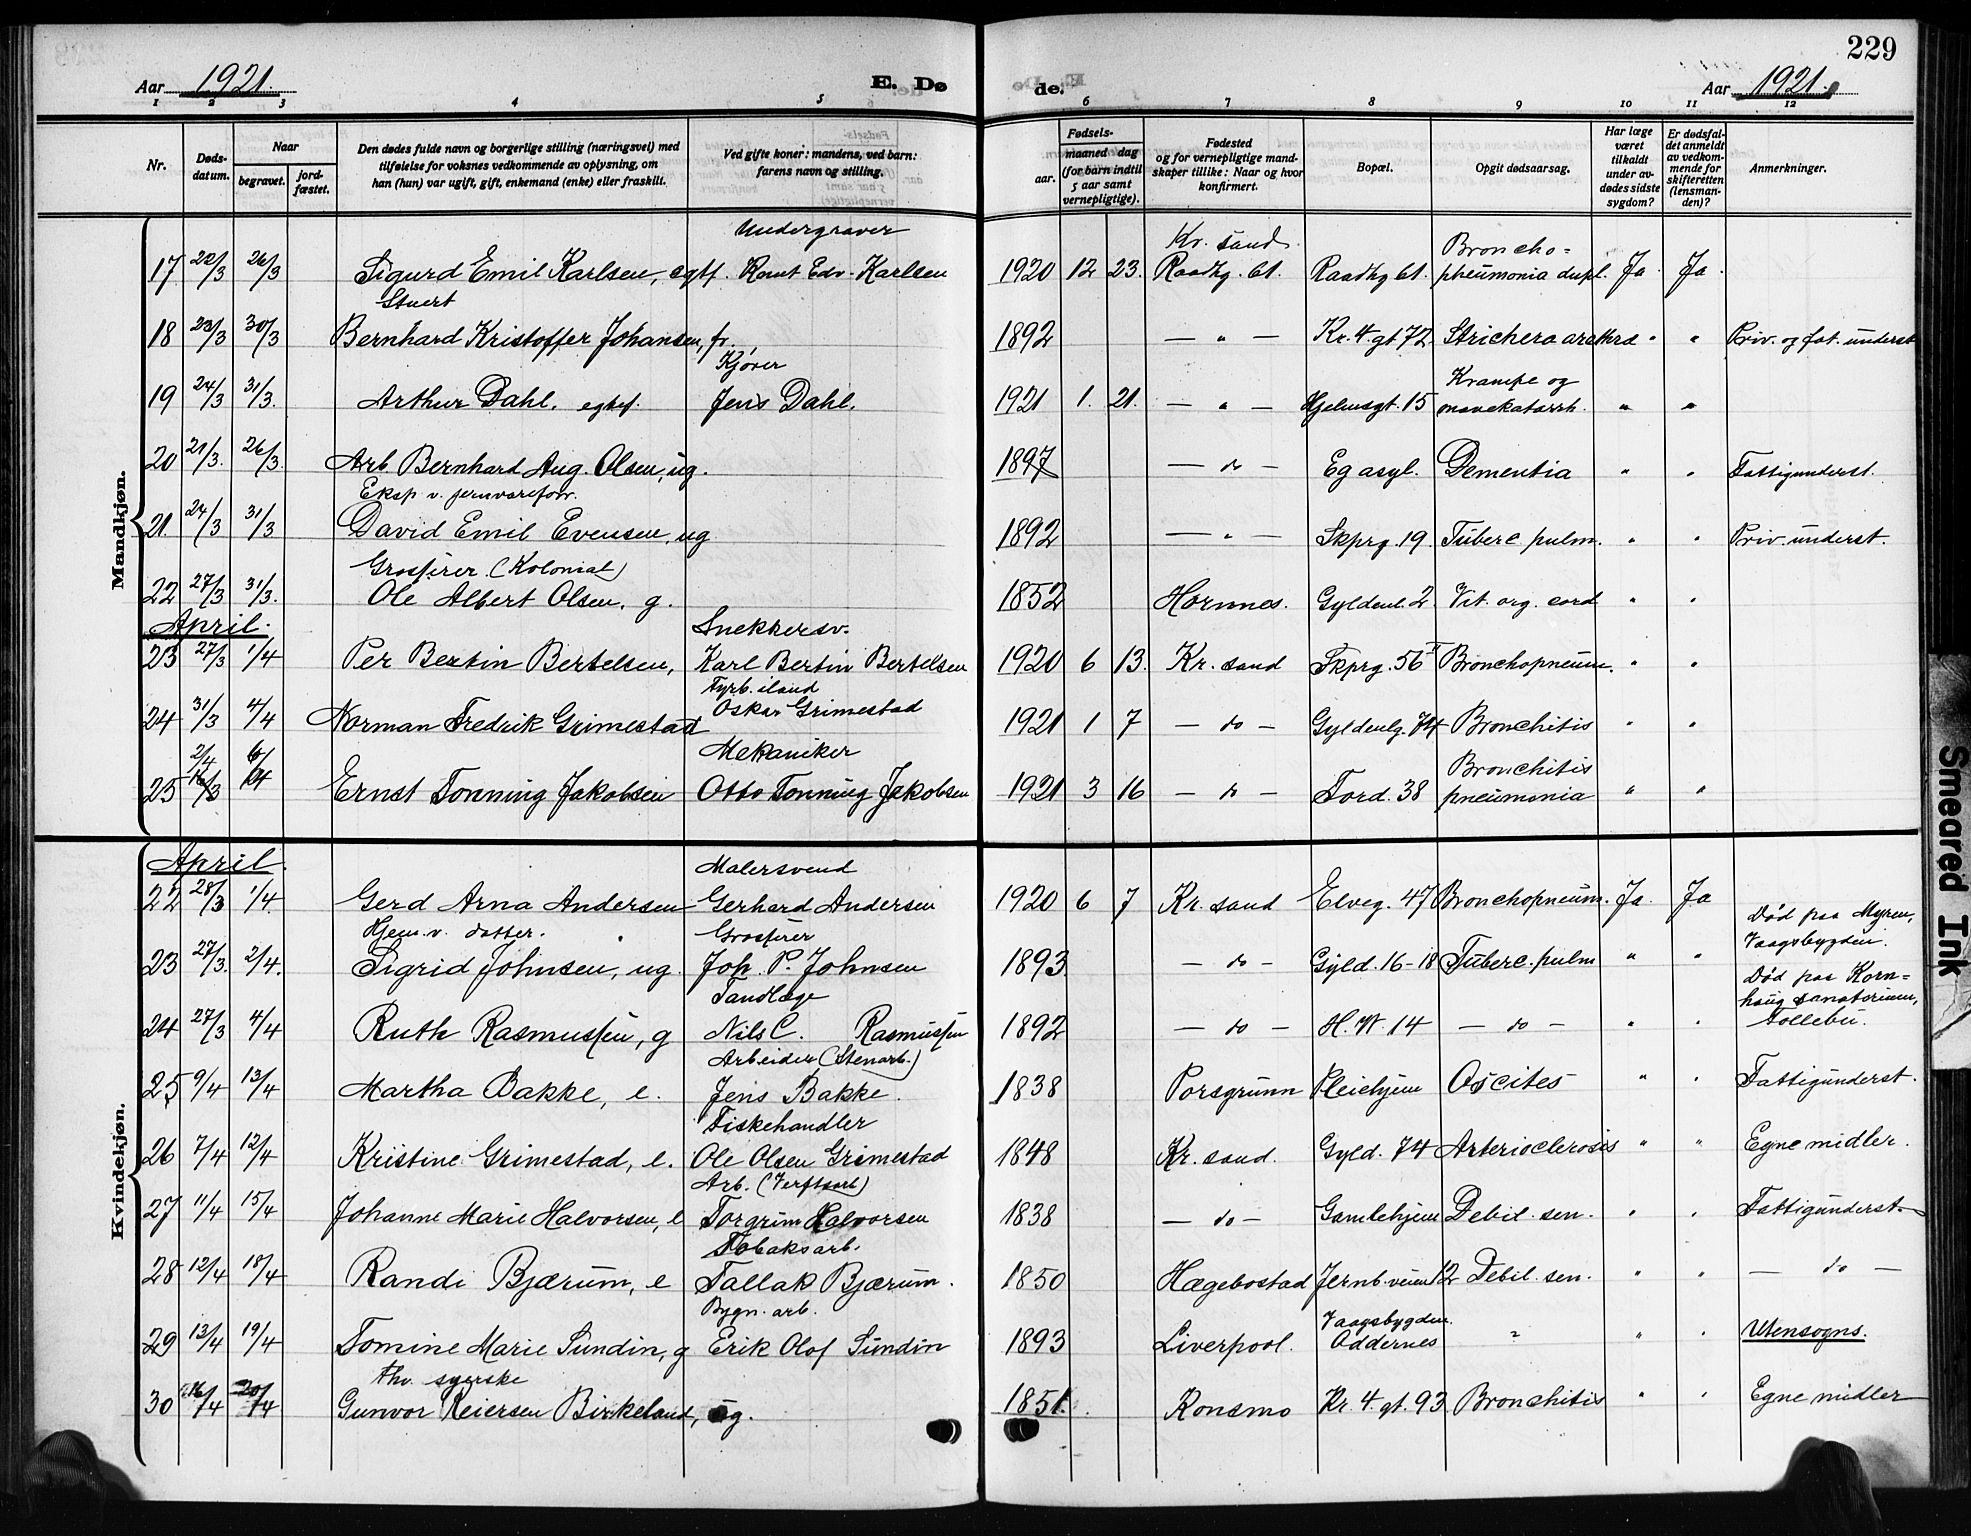 229
Aar 1921. E. Dø de. Aar 1921.
1 2 3 4 5 6 7 8 9 10 11 12
Nr. Døds-datum. Naar begravet. jord-fæstet. Den dødes fulde navn og borgerlige stilling (næringsvei) med tilføielse for voksnes vedkommende av oplysning, om han (hun) var ugift, gift, enkemand (enke) eller fraskilt. Ved gifte koner: mandens, ved barn: farens navn og stilling. Fødsels- aar. maaned dag (for barn indtil 5 aar samt vernepligtige). Fødested og for vernepligtige mand-skaper tillike: Naar og hvor konfirmert. Bopæl. Opgit dødsaarsag. Har læge været tilkaldt under av-dødes sidste sygdom? Er dødsfal-det anmeldt av vedkom-mende for skifteretten (lensman-den)? Anmerkninger.
Mandkjøn.
Kr. sand Broncho=
17 22/3 26/3 Sigurd Emil Karlsen, egtf. Edv. Karlsen 1920 12 23. Raadhg. 61. Raadhg 61. pneumonia dupl. Ja Ja
Stuert
18 23/3 30/3 Bernhard Kristoffer Johansen, fr. 1892 — " — Kr. 4 gt 72 " " Priv. og fat. underst
Kjører Krampe og
19 24/3 31/3. Arthur Dahl. egtef. Jens Dahl. 1921 1. 21. — " — 15 mavekatarrh. " "
20 21/3. 26/3. Arb. Bernhard Aug. Olsen, ug. 1897 — do — Eg asyl. Dementia " " Fattigunderst.
Eksp v. jernvareforr.
21. 24/3 31/3 David Emil Evensen, ug 1892 — " — Skprg. 19. Tuberc pulm. " " Priv. underst.
Grosserer (Kolonial)
22 27/3 31/3. Ole Albert Olsen. g. 1852 Hornnes. Gyldenl. 2 Vit. org. cord " "
April. Snekkersv.
23 27/3 1/4 Per Bertin Bertelsen, Karl Bertin Bertelsen 1920 6 13. Kr. sand Skprg. 56 II Bronchopneum. " "
Fyrb. iland
24 31/3 4/4 Norman Fredrik Grimestad Oskar Grimestad 1921 1 7 — do — Gyldenlg. 74 Bronchitis " "
2/4 6/ Mekaniker Bronchitis
25 16/3 4 Ernst Tonning Jakobsen Otto Tonning Jakobsen 1921 3 16 — do — Tord. 38 pneumonia " "
Kvindekjøn.
April. Malersvend
22 28/3 1/4 Gerd Arna Andersen Gerhard Andersen 1920 6 7 Kr. sand Elveg. 47 Bronchopneum. Ja. Ja
Hjem. v. datter. Grosserer Død paa Myren, Vaagsbygden.
23 27/3. 2/4. Sigrid Johnsen, ug. Joh. P. Johnsen 1893 — do — Gyld. 16-18 Tuberc. pulm " "
Tandlæge Død paa Korn=haug sanatorium,
24 27/3 4/4 Ruth Rasmussen, g Nils C. Rasmussen 1892 — do — H. W. 14 — do — " " Follebu.
Arbeider (Stenarb.)
25 9/4 13/4 Martha Bakke, e. Jens Bakke. 1838 Porsgrunn Pleiehjem Ascites " " Fattigunderst.
Fiskehandler
26 7/4 12/4 Kristine Grimestad, e. Ole Olsen Grimestad 1848 Kr. sand. Gyld. 74 Arterioclerosis " " Egne midler.
Arb. (Verftsarb)
27 11/4 15/4 Johanne Marie Halvorsen, e Torgrim Halvorsen 1838 — do — Gamlehjem Debil. sen. " " Fattigunderst.
Tobaksarb.
28 12/4 18/4 Randi Bjærum, e Tallak Bjærum. 1850 Hægebostad Jernb. veien 12 Debil. sen. " " — do —
Bygn. arb. Vaagsbygden.
29 13/4 19/4 Tomine Marie Sundin, g Erik Olof Sundin 1893 Liverpool. Oddernes " " " Utensogns.
fhv. syerske
30 16/4 20/4 Gunvor Reiersen Birkeland, ug. 1851. Konsmo Kr. 4. gt. 93. Bronchitis " " Egne midler
Smeared Ink